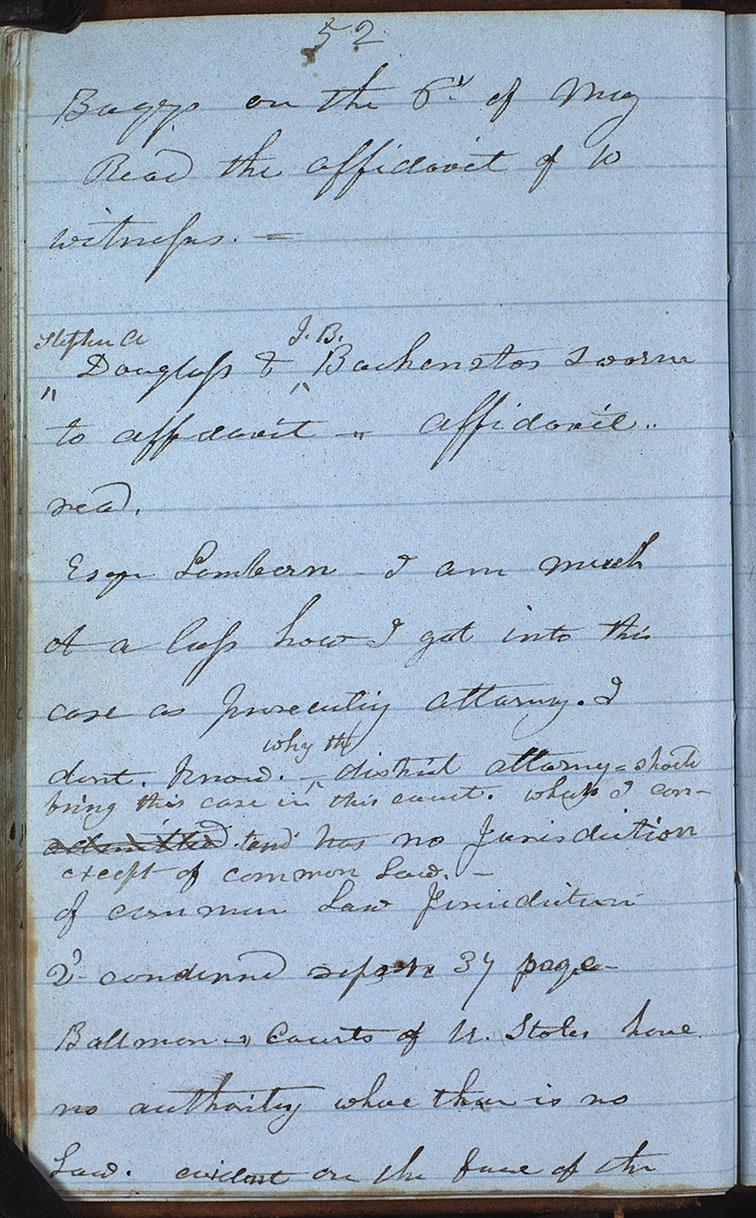 52
Boggs on the 6th of May
Read the affidavit of 10
witness. —
Stephen A J. B.
" Douglass & " Backenstos sworn
to affidavit — affidavit..
read.
Esqr Lambern – I am much
at a loss how I got into this
case as prosecutig attorny. I
why th
dont. know. – district attorny = shoud
bring this case in this court. whch I con–
admitted tend has no Jurisdiction
except of common Law. –
of common Law Jurisdiction
2d condensed report 37 page–
Courts of U. States have
no authority whare thare is no
Law. evident on the face of the